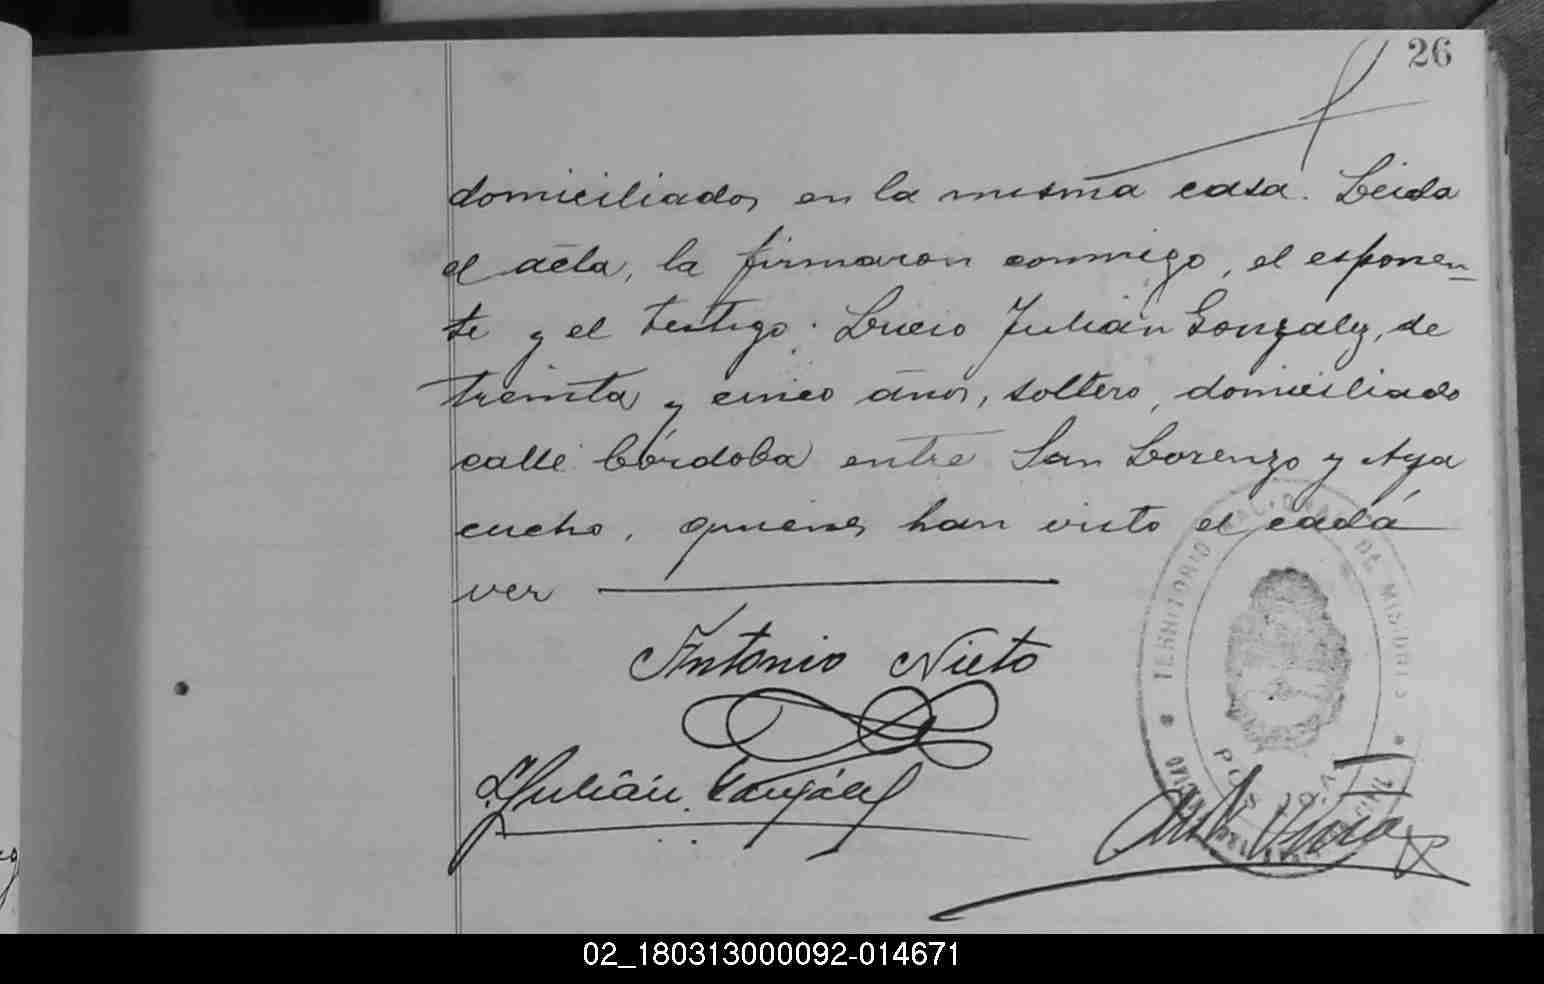 26
domiciliados en la misma casa. Leida
el acta, la firmaron conmigo, el esponen-
te y el testigo. Lucio Julián Gonzalez, de
treinta y cinco años, soltero, domiciliado
calle Córdoba entre San Lorenzo y Aya
cucho, quienes han visto el cadá
ver
Antonio Nieto
L. Julián González
TERRITORIO NACIONAL DE MISIONES
POSADAS
02_180313000092-014671